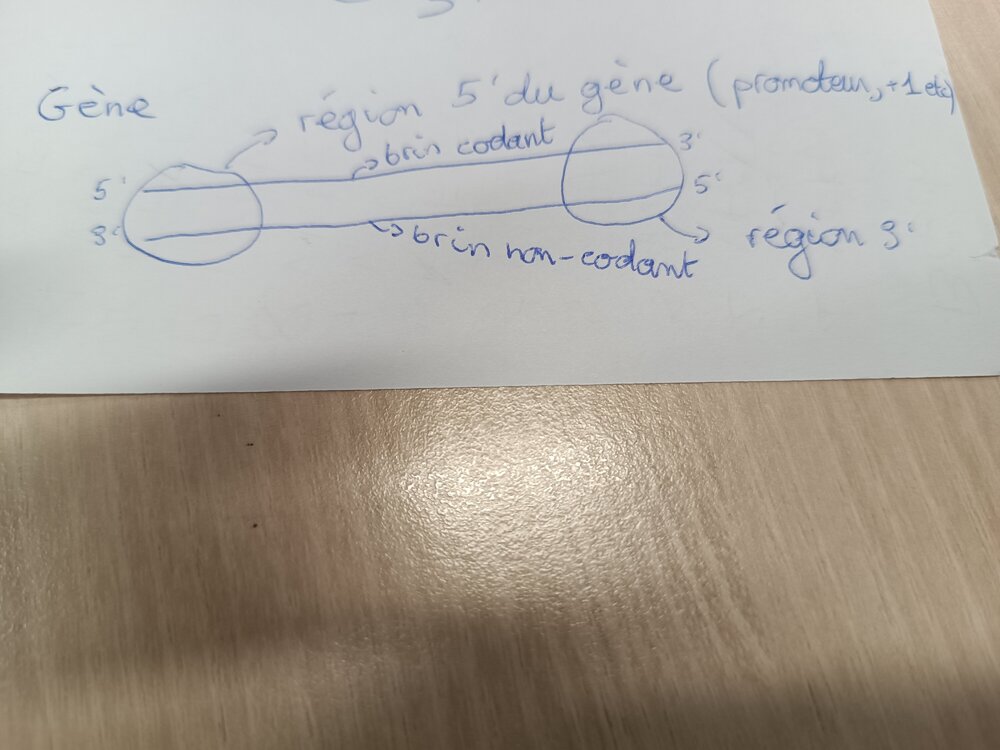 Gène
région 5' du gène (promoteur, +1 etc)
brin codant
5' 3'
3' 5'
brin non-codant
région 3'